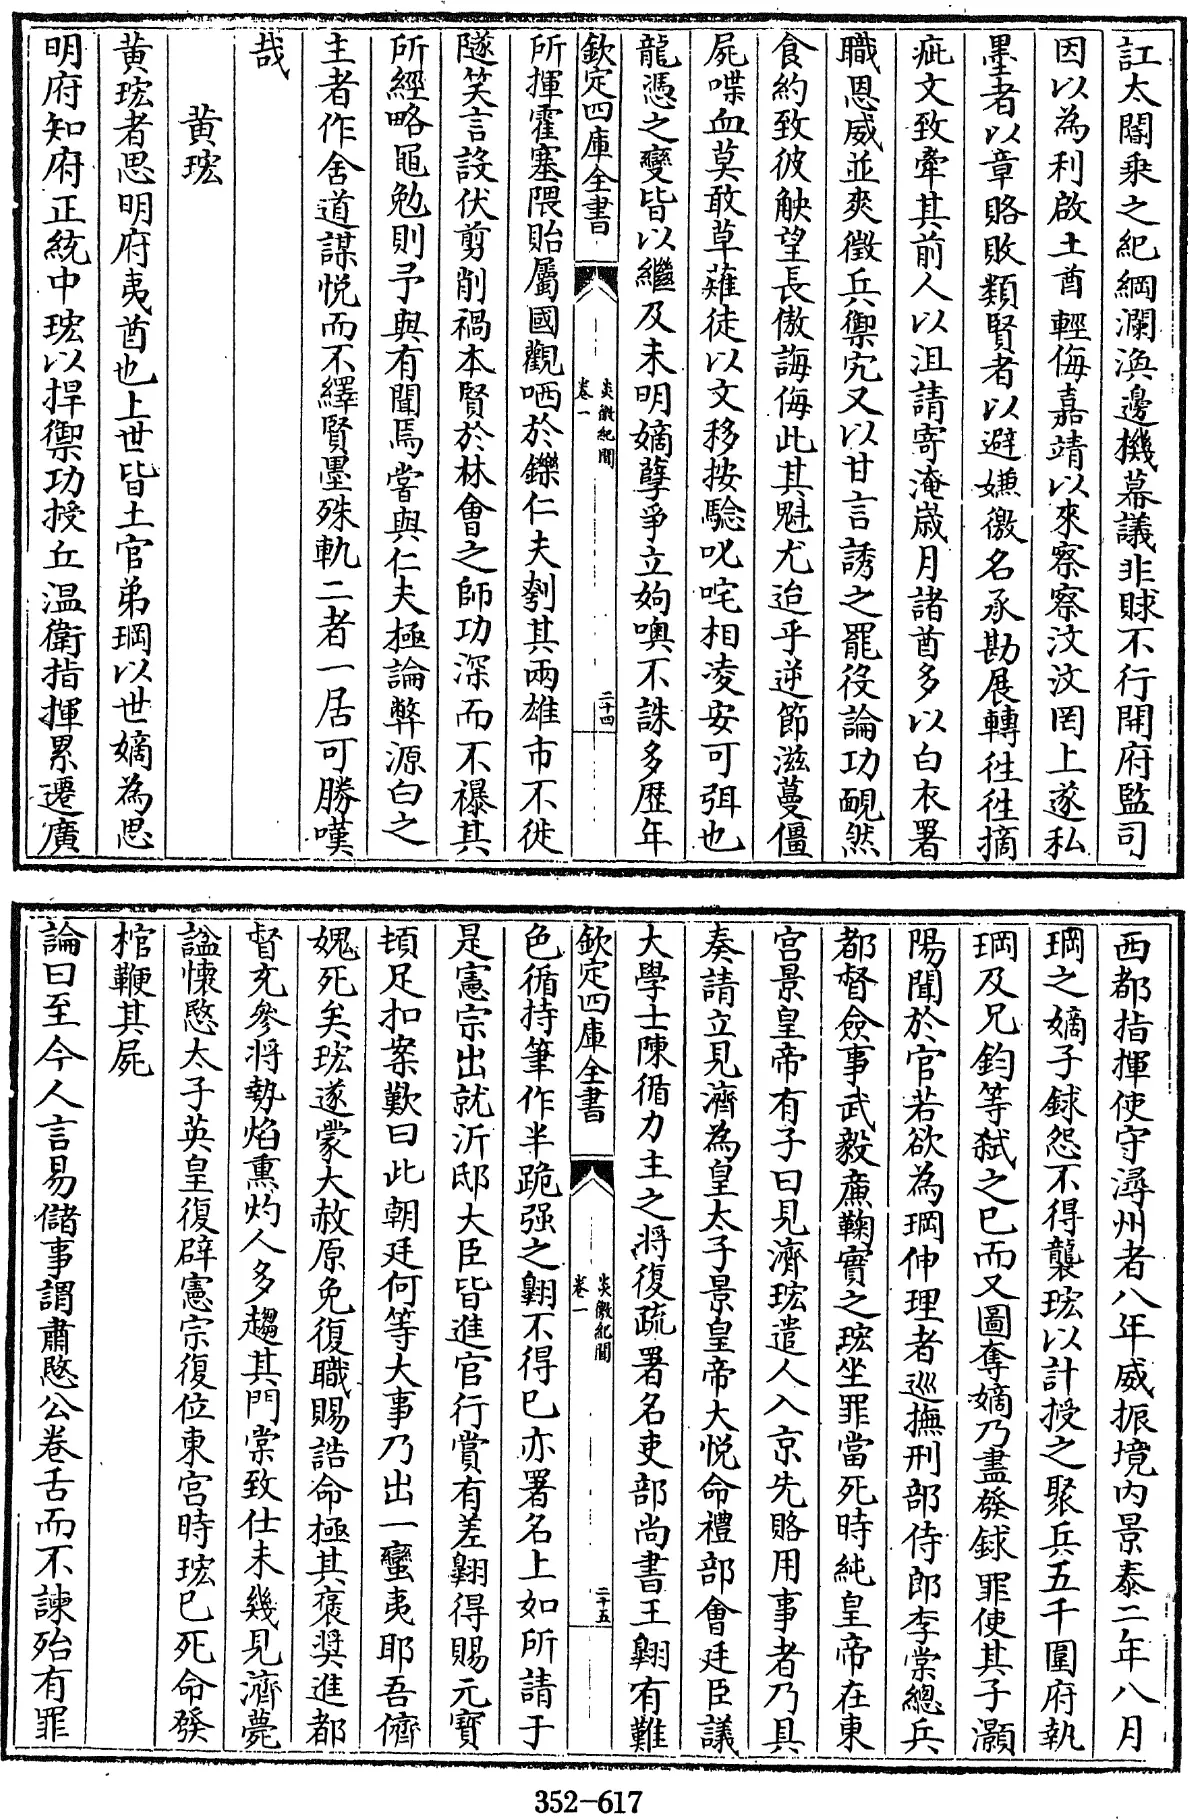 訌太閽乘之紀綱瀾渙邊機幕議非賕不行開府監司
因以為利啟土酋輕侮嘉靖以來察察汶汶罔上遂私
墨者以章賂敗類賢者以避嫌徼名承勘展轉往往摘
疵文致牽其前人以沮請寄淹嵗月諸酋多以白衣署
職恩威並爽徵兵禦宄又以甘言誘之罷役論功靦然
食約致彼觖望長傲誨侮此其魁尤迨乎逆節滋蔓僵
屍喋血莫敢草薙徒以文移按驗叱咤相凌安可弭也
龍憑之變皆以繼及未明嫡孽爭立姁噢不誅多歴年
欽定四庫全書
炎徼紀聞
卷一
二十四
所揮霍塞隈貽屬國觀哂於鑠仁夫刳其兩雄市不徙
隧笑言設伏剪削禍本賢於林會之師功深而不襮其
所經略黽勉則予與有聞焉嘗與仁夫極論弊源白之
主者作舍道謀悅而不繹賢墨殊軌二者一居可勝嘆
哉
黄㺬
黄㺬者思明府夷酋也上世皆土官弟㺬以世嫡為思
明府知府正統中㺬以捍禦功授丘温衛指揮累遷廣
西都指揮使守潯州者八年威振境内景泰二年八月
㺬之嫡子銾怨不得襲㺬以計授之聚兵五千圍府執
㺬及兄鈞等弑之已而又圖奪嫡乃盡發銾罪使其子灝
陽聞於官若欲為㺬伸理者巡撫刑部侍郎李棠總兵
都督僉事武毅亷鞫實之㺬坐罪當死時純皇帝在東
宫景皇帝有子曰見濟㺬遣人入京先賂用事者乃具
奏請立見濟為皇太子景皇帝大悅命禮部會廷臣議
大學士陳循力主之將復疏署名吏部尚書王翺有難
欽定四庫全書
炎徼紀聞
卷一
二十五
色循持筆作半跪强之翺不得已亦署名上如所請于
是憲宗出就沂邸大臣皆進官行賞有差翺得賜元寳
頓足扣案歎曰此朝廷何等大事乃出一蠻夷耶吾儕
媿死矣㺬遂蒙大赦原免復職賜誥命極其褒奬進都
督充參將勢焰熏灼人多趨其門棠致仕未幾見濟薨
諡懷愍太子英皇復辟憲宗復位東宫時㺬已死命發
棺鞭其屍
論曰至今人言易儲事謂肅愍公卷舌而不諫殆有罪
352-617